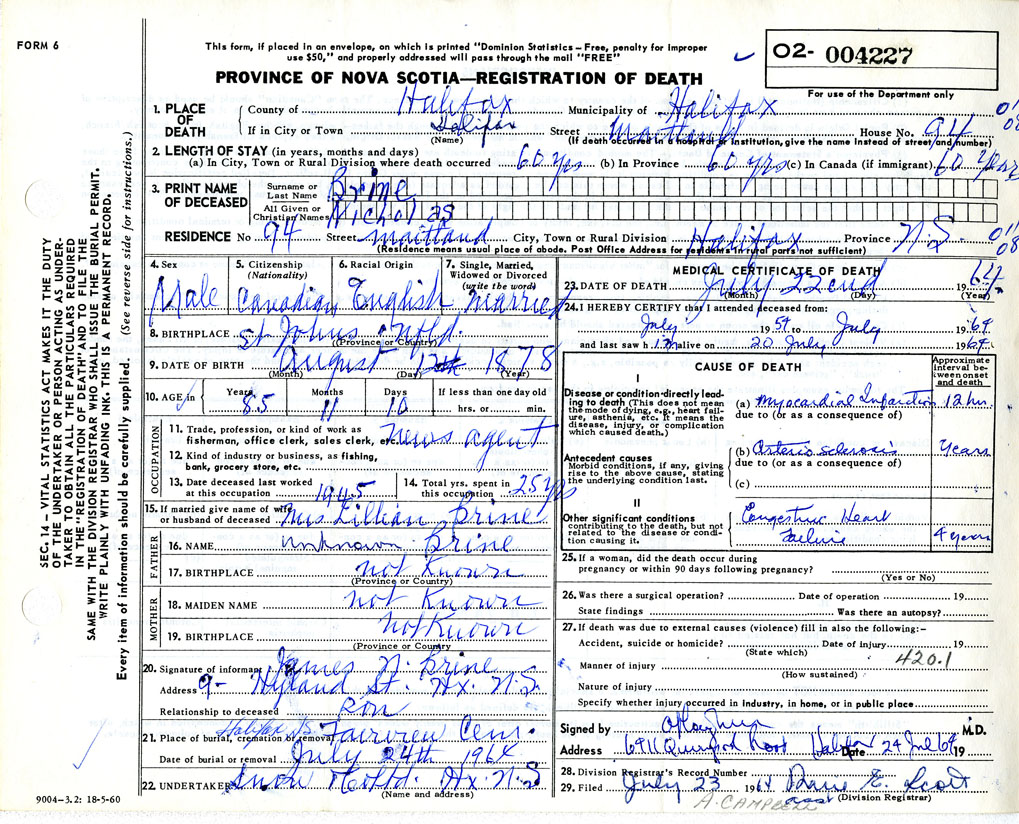 FORM 6
This form, if placed in an envelope, on which is printed "Dominion Statistics – Free, penalty for improper
use $50," and properly addressed will pass through the mail "FREE"
PROVINCE OF NOVA SCOTIA—REGISTRATION OF DEATH
02- 004227
For use of the Department only
1. PLACE OF DEATH
County of Halifax Municipality of Halifax
If in City or Town Halifax Street Maitland House No. 94
(Name) (If death occurred in a hospital or institution, give name instead of street and number)
2. LENGTH OF STAY (in years, months and days)
(a) In City, Town or Rural Division where death occurred 60 yrs (b) In Province 60 yrs (c) In Canada (if immigrant) 60 years
3. PRINT NAME OF DECEASED
Surname or Last Name Brine
All Given or Christian Names Nicholas
RESIDENCE No 94 Street Maitland City, Town or Rural Division Halifax Province N.S.
(Residence means usual place of abode. Post Office Address for residents in rural parts not sufficient)
4. Sex Male
5. Citizenship (Nationality) Canadian
6. Racial Origin English
7. Single, Married, Widowed or Divorced (write the word) Married
8. BIRTHPLACE St Johns Nfld.
(Province or Country)
9. DATE OF BIRTH August 12th 1878
(Month) (Day) (Year)
10. AGE in Years 85 Months 11 Days 10 If less than one day old hrs. or min.
OCCUPATION
11. Trade, profession, or kind of work as
fisherman, office clerk, sales clerk, etc. News agent
12. Kind of industry or business, as fishing,
bank, grocery store, etc.
13. Date deceased last worked
at this occupation 1945
14. Total yrs. spent in
this occupation 25 yrs
15. If married give name of wife
or husband of deceased Mrs Lillian Brine
FATHER
16. NAME unknown Brine
17. BIRTHPLACE not Known
(Province or Country)
MOTHER
18. MAIDEN NAME not Known
19. BIRTHPLACE not Known
(Province or Country)
20. Signature of informant James N. Brine
Address 9- Hyland St. Hx. N.S.
Relationship to deceased Son
21. Place of burial, cremation or removal Halifax NS Fairview Cem.
Date of burial or removal July 24th 1964
22. UNDERTAKER Snow Hx. N.S
(Name and address)
9004-3.2: 18-5-60
SEC. 14 – VITAL STATISTICS ACT MAKES IT THE DUTY
OF THE UNDERTAKER OR PERSON ACTING AS UNDER-
TAKER TO OBTAIN ALL THE PARTICULARS REQUIRED
IN THE "REGISTRATION OF DEATH" AND TO FILE THE
SAME WITH THE DIVISION REGISTRAR WHO SHALL ISSUE THE BURIAL PERMIT.
WRITE PLAINLY WITH UNFADING INK. THIS IS A PERMANENT RECORD.
Every item of information should be carefully supplied. (See reverse side for instructions.)
MEDICAL CERTIFICATE OF DEATH
23. DATE OF DEATH July 22nd 1964
(Month) (Day) (Year)
24. I HEREBY CERTIFY that I attended deceased from:
July 1954 to July 1964
and last saw him alive on 20 July 1964
CAUSE OF DEATH
Approximate interval between onset and death
I
Disease or condition directly leading
to death (This does not mean
the mode of dying, e.g., heart failure,
asthenia, etc. It means the
disease, injury, or complication
which caused death.)
(a) Myocardial Infarction 12 hr.
due to (or as a consequence of)
Antecedent causes
Morbid conditions, if any, giving
rise to the above cause, stating
the underlying condition last.
(b) Arteriosclerosis Years
due to (or as a consequence of)
(c)
II
Other significant conditions
contributing to the death, but not
related to the disease or condition
causing it.
Congestive Heart
Failure 4 years
25. If a woman, did the death occur during
pregnancy or within 90 days following pregnancy?
(Yes or No)
26. Was there a surgical operation? Date of operation 19
State findings Was there an autopsy?
27. If death was due to external causes (violence) fill in also the following:–
Accident, suicide or homicide? Date of injury 19
(State which)
420.1
Manner of injury
(How sustained)
Nature of injury
Specify whether injury occurred in industry, in home, or in public place
Signed by M.D.
Address 6911 Halifax Date 24 Jul 64 19
28. Division Registrar's Record Number
29. Filed July 23 1964 E. Scott
(Division Registrar)
A. CAMPBELL